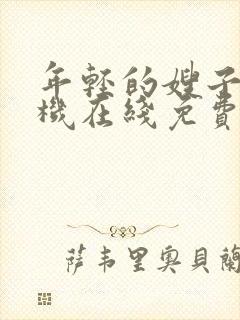 年轻的嫂子
機在綫免費
萨韦里奥貝蘭